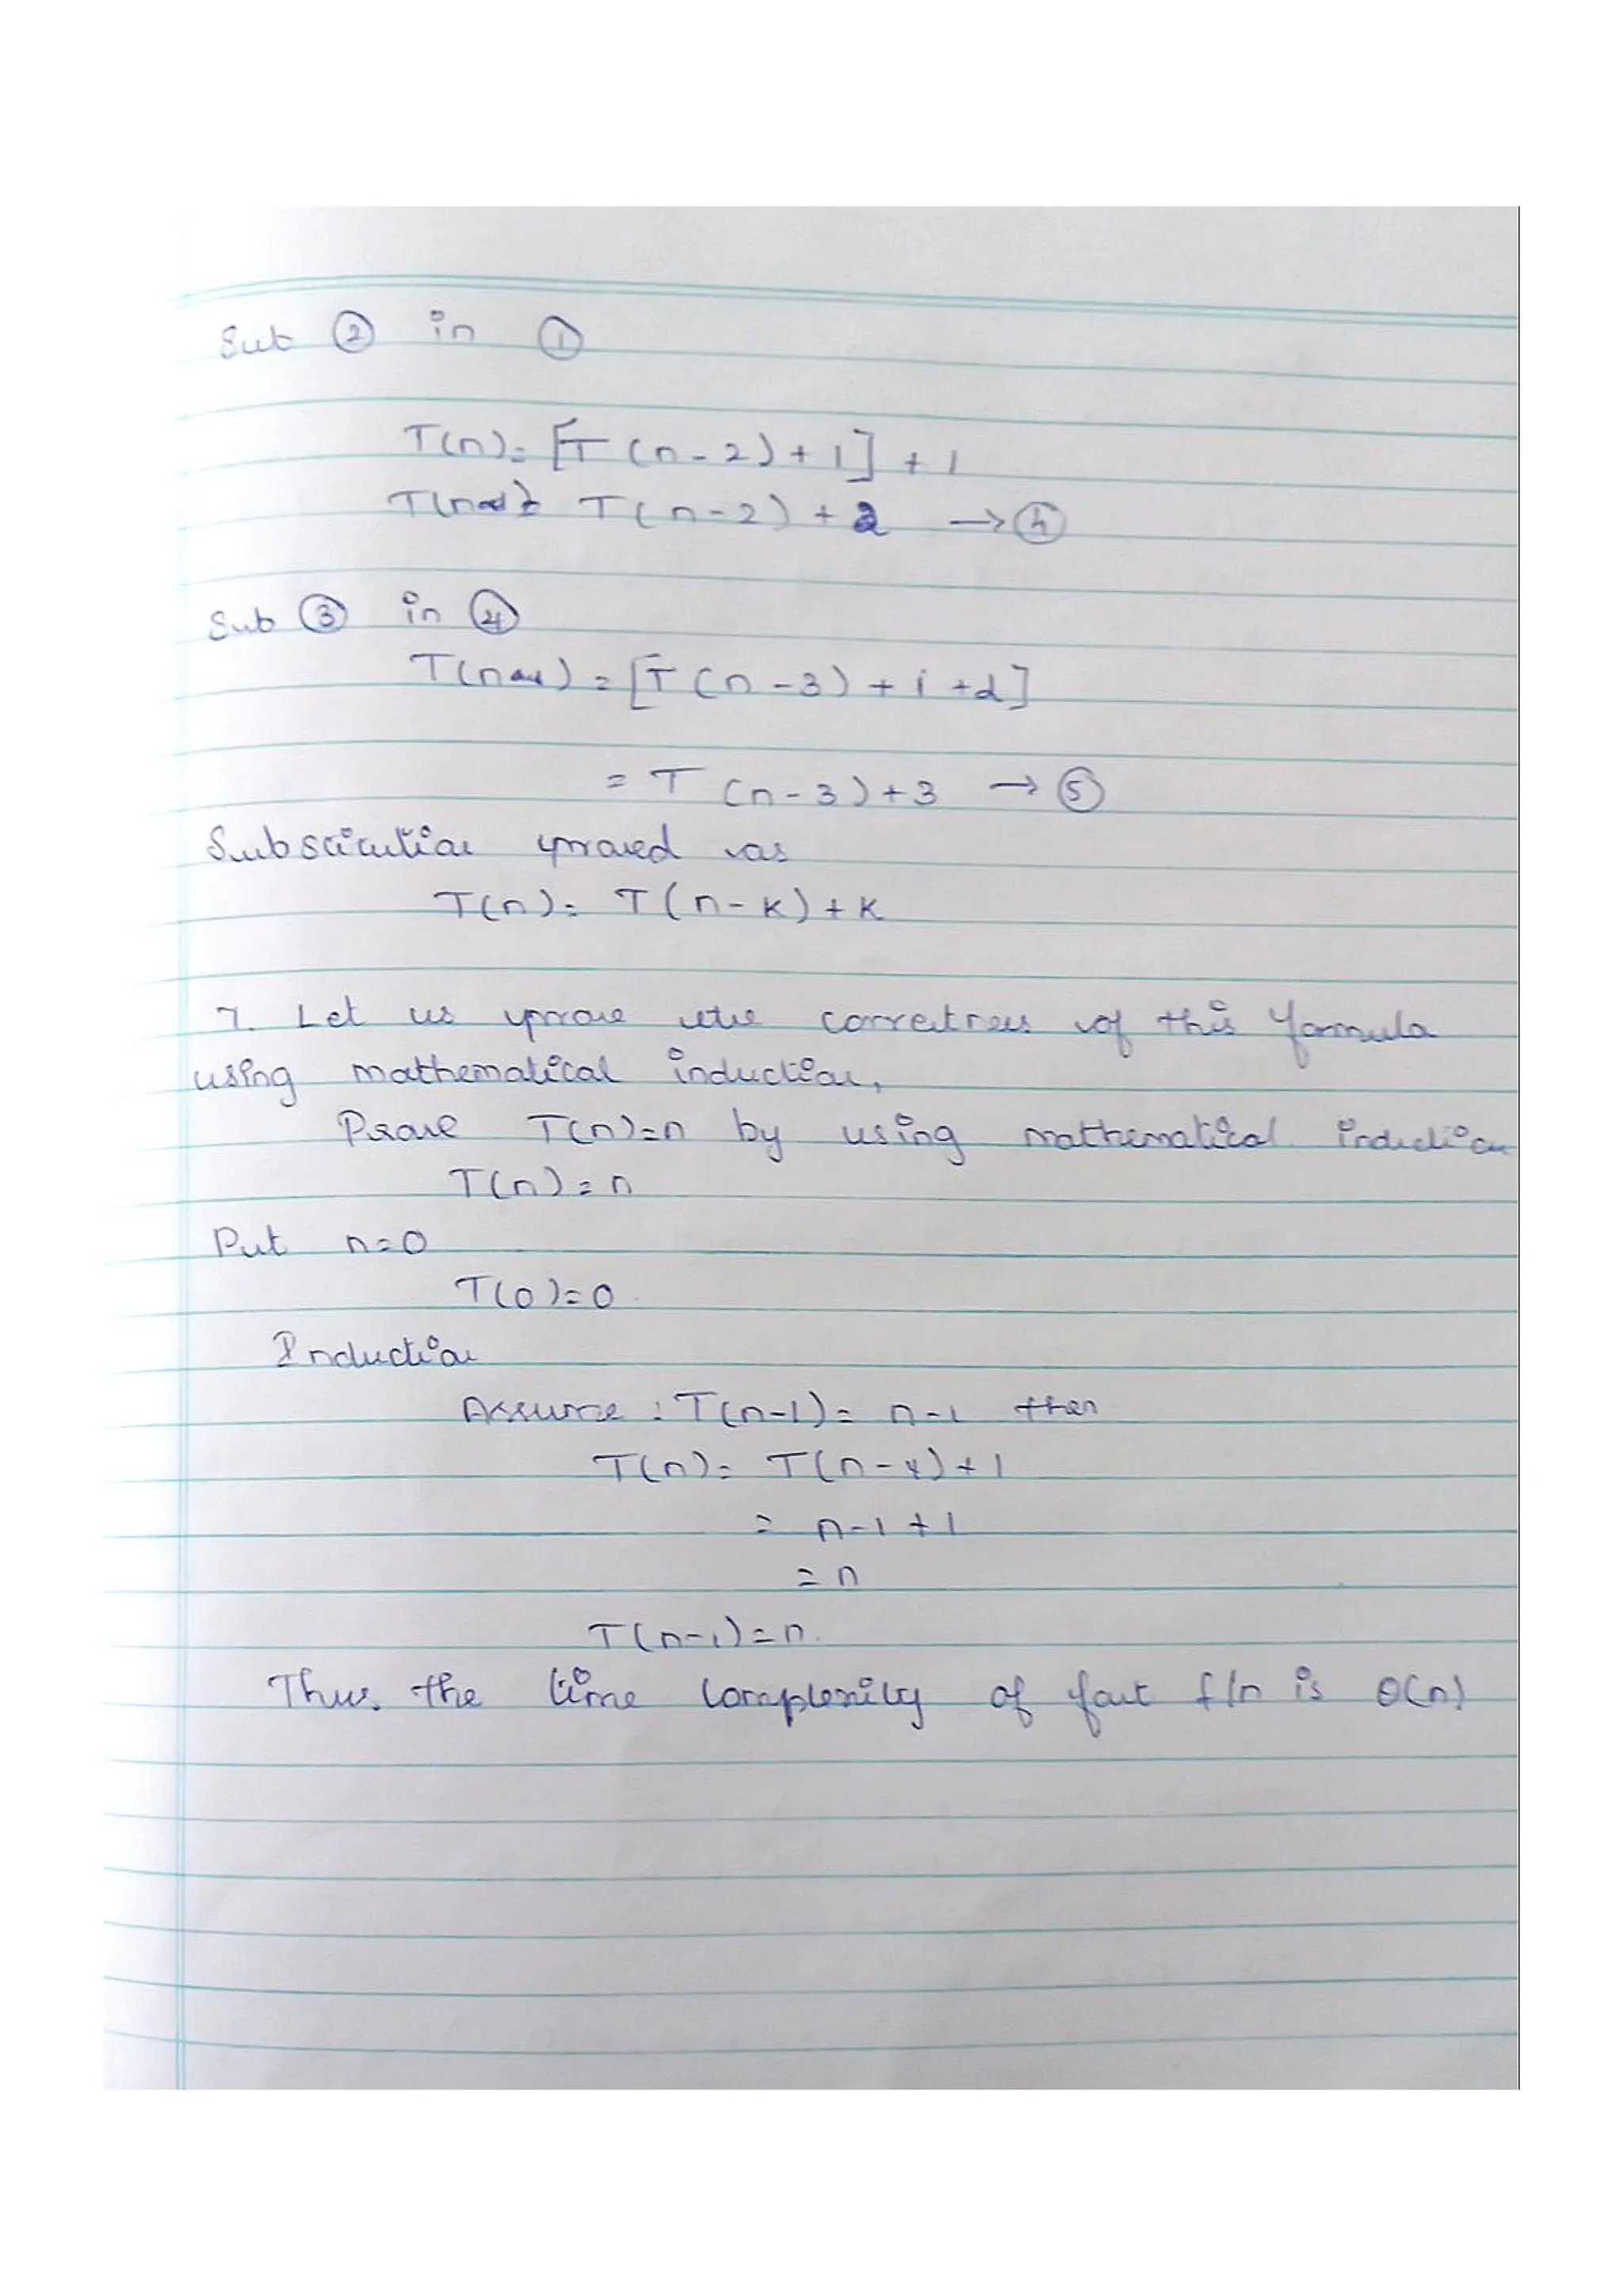 Sub ② in ①
T(n) = [T(n-2)+1] + 1
T(n) = T(n-2) + 2 → ④
Sub ③ in ④
T(n) = [T(n-3) + 1 + 2]
= T(n-3) + 3 → ⑤
Substitution proved as
T(n) = T(n-k) + k
7. Let us prove the correctness of this formula
using mathematical induction,
Prove T(n)=n by using mathematical induction
T(n) = n
Put n=0
T(0)=0
Induction
Assume : T(n-1) = n-1 then
T(n) = T(n-1) + 1
= n-1+1
= n
T(n-1) = n.
Thus, the time complexity of fact f/n is θ(n)